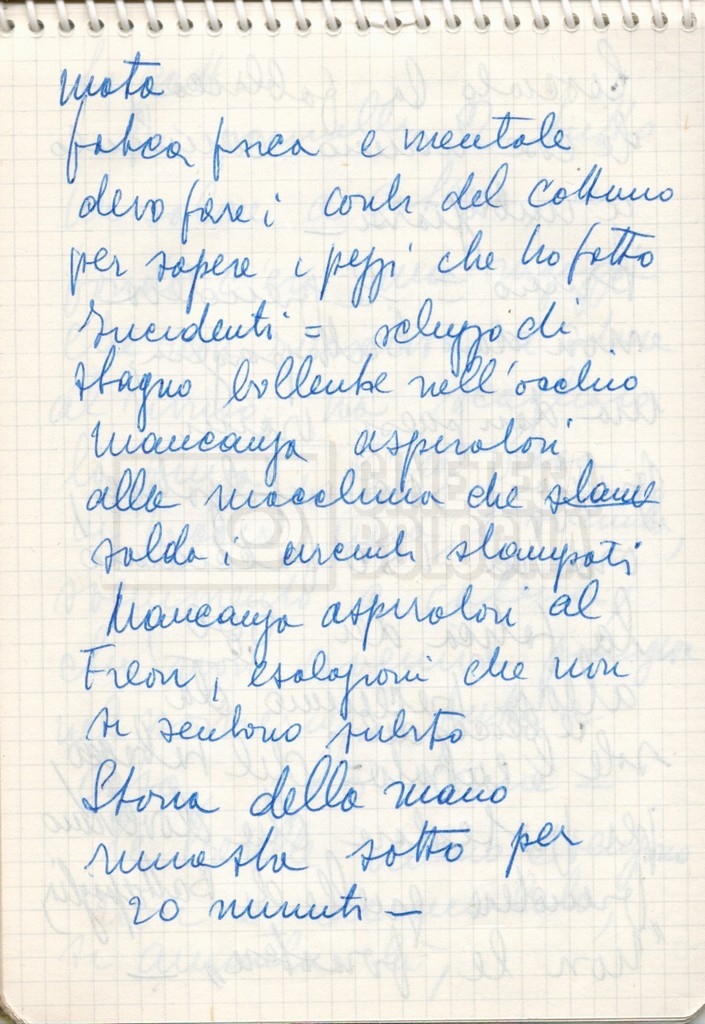 fatica fisica e mentale
devo fare i conti del cottimo
per sapere i pezzi che ho fatto
Incidenti = schizzo di
stagno bollente nell'occhio
Mancanza aspiratori
alla macchina che
salda i circuiti stampati
Mancanza aspiratori al
Freon, esalazioni che non
si sentono subito
Storia della mano
rimasta sotto per
20 minuti —